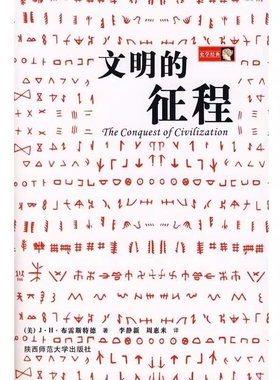 文明的
光学经典
征程
The Conquest of Civilization
(美) J·H·布雷斯特德 著 李静新 周惠来 译
陕西师范大学出版社